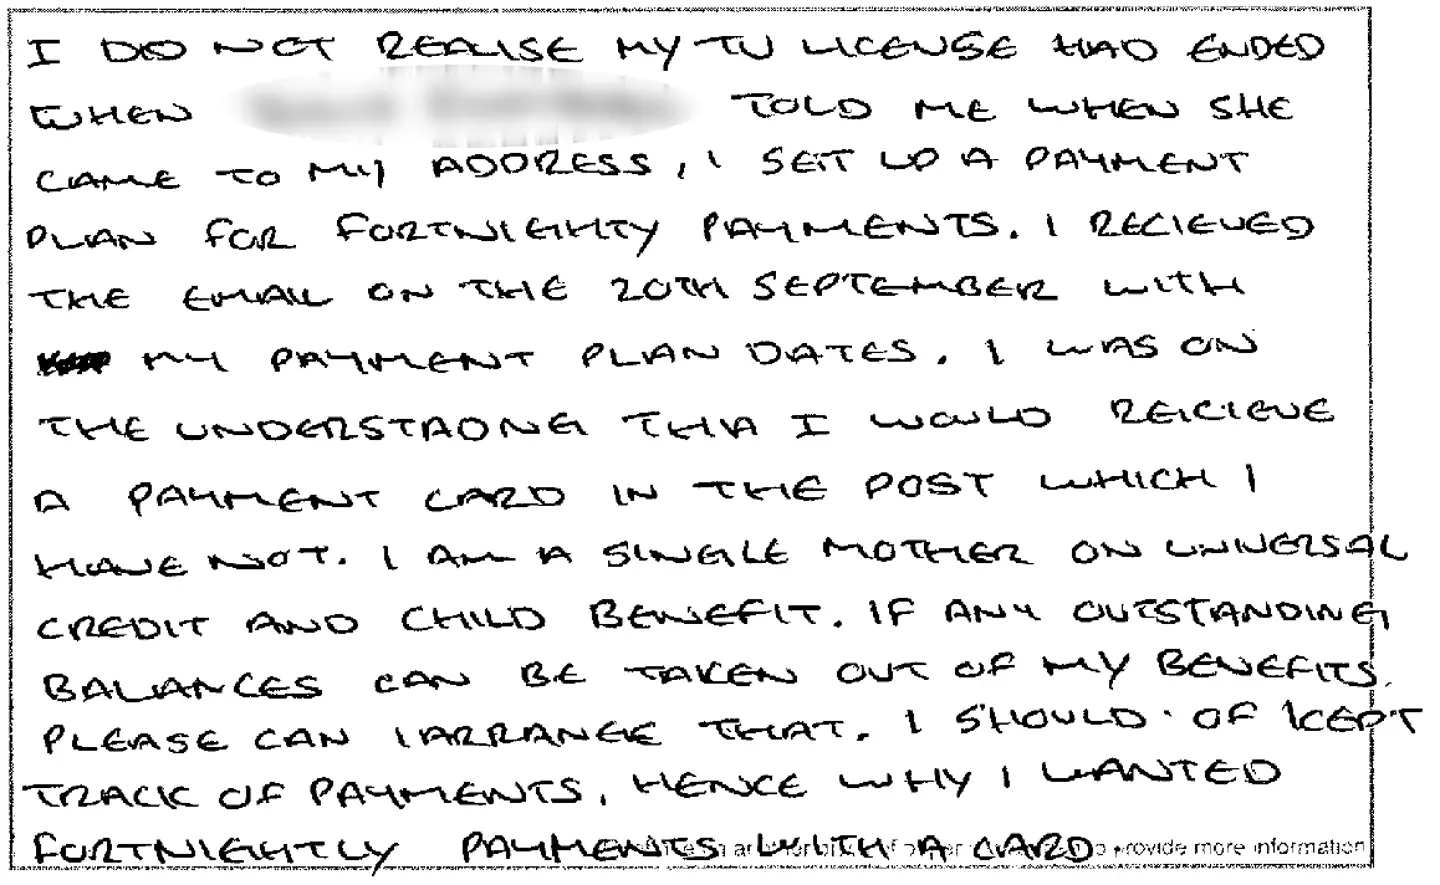 I DO NOT REALISE MY TV LICENSE HAD ENDED
WHEN TOLD ME WHEN SHE
CAME TO MY ADDRESS, I SET UP A PAYMENT
PLAN FOR FORTNIGHTY PAYMENTS. I RECIEVED
THE EMAIL ON THE 20TH SEPTEMBER WITH
MY PAYMENT PLAN DATES. I WAS ON
THE UNDERSTADNG THA I WOULD RECIEVE
A PAYMENT CARD IN THE POST WHICH I
HAVE NOT. I AM A SINGLE MOTHER ON UNIVERSAL
CREDIT AND CHILD BENEFIT. IF ANY OUTSTANDING
BALANCES CAN BE TAKEN OUT OF MY BENEFITS.
PLEASE CAN I ARRANGE THAT. I SHOULD OF KEPT
TRACK OF PAYMENTS, HENCE WHY I WANTED
FORTNIGHTLY PAYMENTS WITH A CARD
provide more information